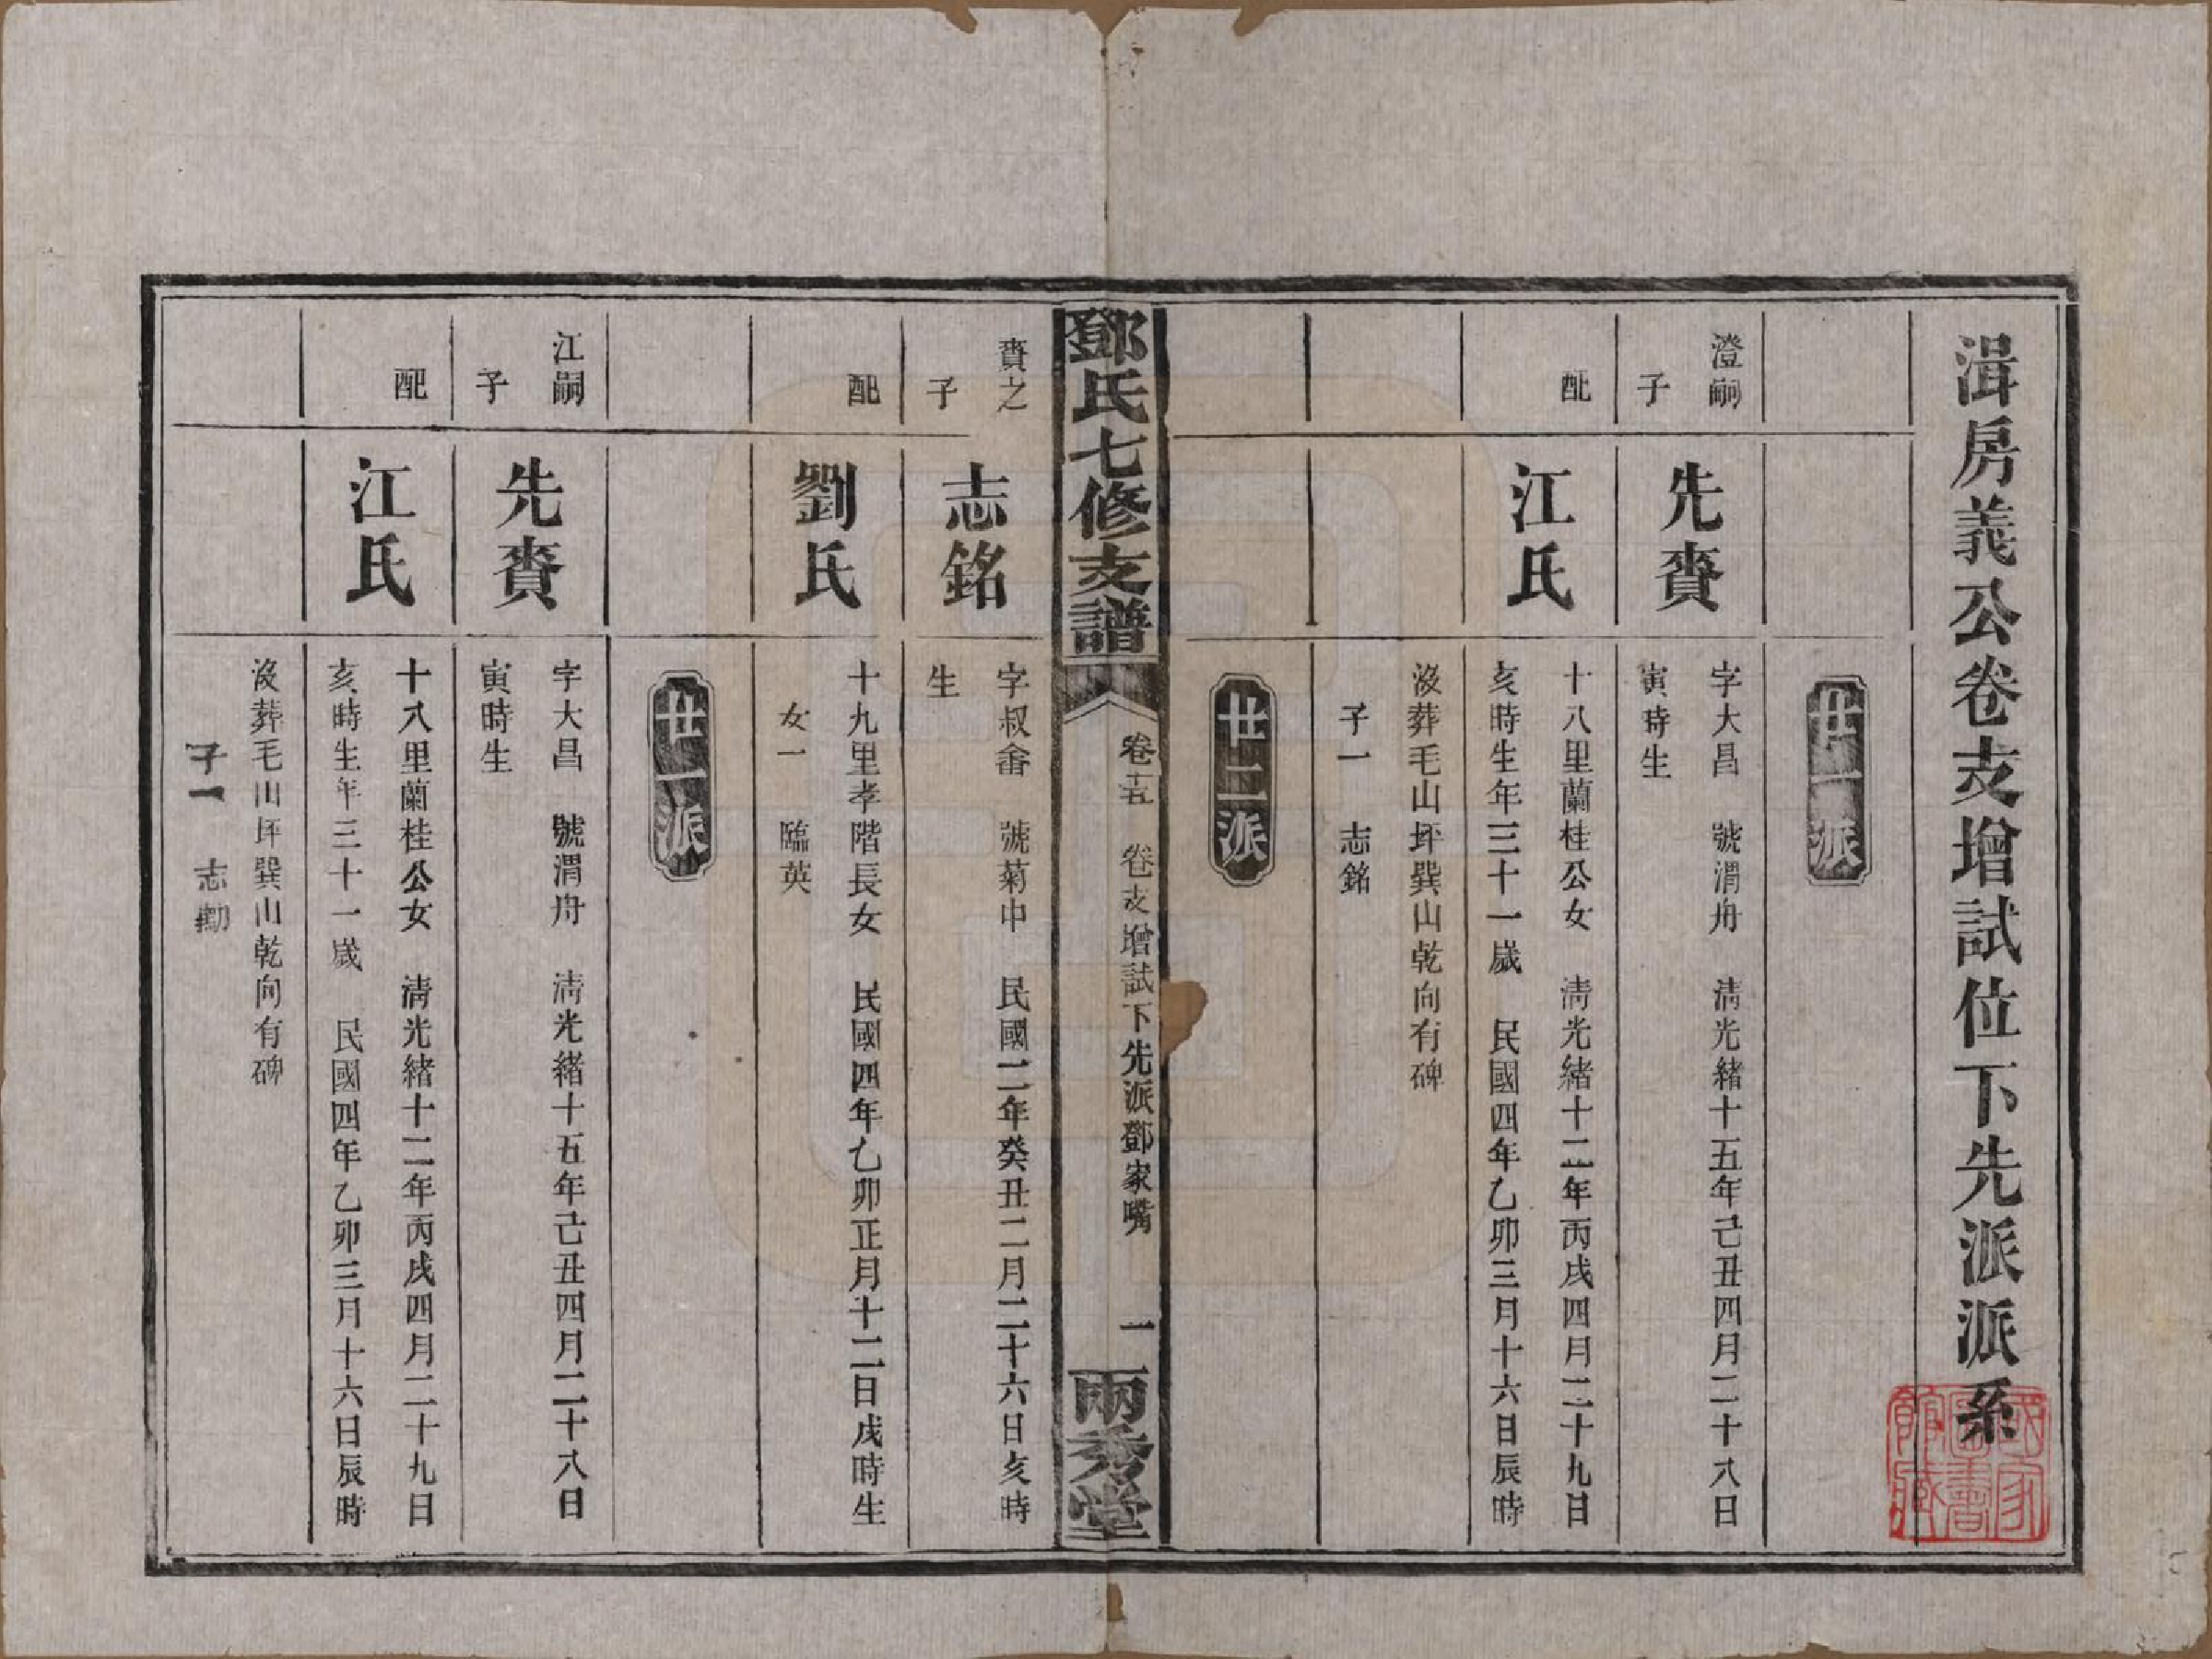 湒房義公卷支增試位下先派派系
廿一派
澄嗣子
先賚
字大昌　號渭舟　清光緒十五年己丑四月二十八日
寅時生
配
江氏
十八里蘭桂公女　清光緒十二年丙戌四月二十九日
亥時生年三十一歲　民國四年乙卯三月十六日辰時
沒葬毛山坪巽山乾向有碑
子一　志銘
廿二派
鄧氏七修支譜
卷十五　卷支增試下先派鄧家嘴　一
兩秀堂
賚之子
志銘
字叔畬　號菊中　民國二年癸丑二月二十六日亥時
生
配
劉氏
十九里孝階長女　民國四年乙卯正月十二日戌時生
女一　臨英
廿一派
江嗣子
先賚
字大昌　號渭舟　清光緒十五年己丑四月二十八日
寅時生
配
江氏
十八里蘭桂公女　清光緒十二年丙戌四月二十九日
亥時生年三十一歲　民國四年乙卯三月十六日辰時
沒葬毛山坪巽山乾向有碑
子一　志
國家圖書館藏